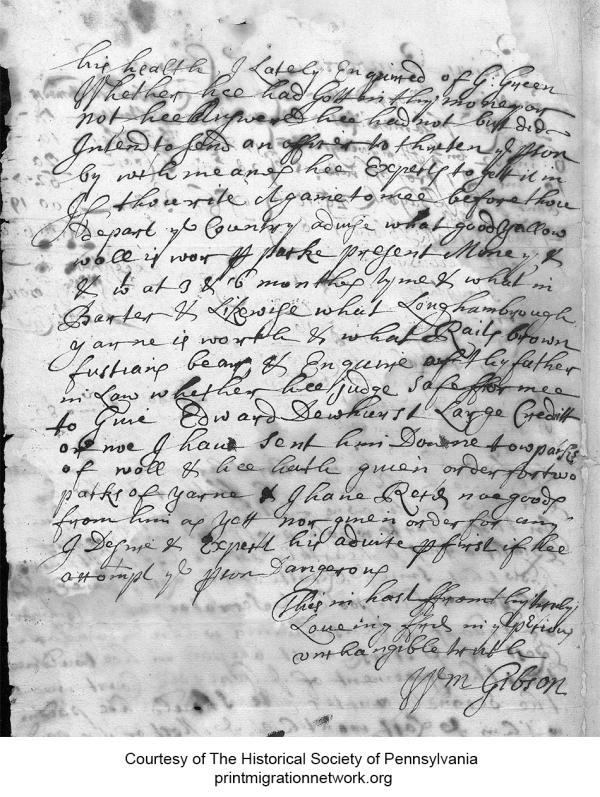 his health I Lately Enquired of G: Green
Whether hee had Gott in thy money or
not hee Answered hee had not but did
Intend to send an officer to thye
by wch meanes hee Expects to gett it in
If thou write Againe to mee before thou
Depart ye Country advise what good yallow
woll is wor p packe present Money &
& at 3 & 6 monthes tyme & what in
Barter & Likewise what Longhambrough
yarne is worth & what Rails brown
fustians beare & Enquire of thy father
in Law whether hee Judge Safe ffor mee
to Give Edward Dewhurst Large Creditt
or noe I have Sent him Downe tow packs
of woll & hee hath given order for two
packs of yarne & I have Recd noe goods
from him as yett nor given order for any
I Desire & Expect his advice p first if hee
attempt ye Dangerous
This in hast ffrom thy truly
Loveing ffrd in ye
unchangible truth
Wm Gibson
Courtesy of The Historical Society of Pennsylvania
printmigrationnetwork.org